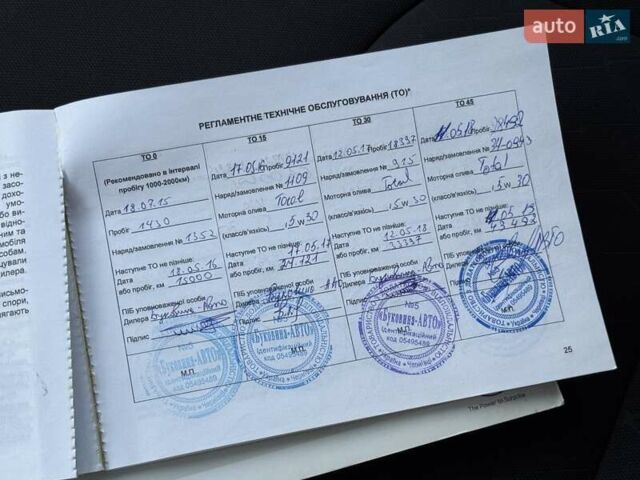 auto RIA .com
РЕГЛАМЕНТНЕ ТЕХНІЧНЕ ОБСЛУГОВУВАННЯ (ТО)*
ТО 0
(Рекомендовано в інтервалі
пробігу 1000-2000км)
Дата 18.07.15
Пробіг 1430
Наряд/замовлення № 1352
Наступне ТО не пізніше:
Дата 18.05.16
або пробіг, км 15000
ПІБ уповноваженої особи
Дилера Буковина Авто
Підпис
М.П.
ТО 15
Дата 17.05.16 Пробіг 9121
Наряд/замовлення № 1109
Моторна олива Total
(класс/в'язкість) , 5 w 30
Наступне ТО не пізніше:
Дата 17.05.17
або пробіг, км 24121
ПІБ уповноваженої особи
Дилера
Підпис
М.П.
ТО 30
Дата 12.05.17 Пробіг 18337
Наряд/замовлення № 915
Моторна олива Total
(класс/в'язкість) , 5 w 30
Наступне ТО не пізніше:
Дата 12.05.18
або пробіг, км 33337
ПІБ уповноваженої особи
Дилера Буковина Авто
Підпис
М.П.
ТО 45
Дата 11.05.18 Пробіг 28498
Наряд/замовлення №
Моторна олива Total
(класс/в'язкість) , 5 w 30
Наступне ТО не пізніше:
Дата 11.05.19
або пробіг, км 43493
ПІБ уповноваженої особи
Дилера
Підпис
М.П.
«Буковина-АВТО»
Ідентифікаційний
код 05495489
№5
«Буковина-АВТО»
Ідентифікаційний
код 05495489
№5
«Буковина-АВТО»
Ідентифікаційний
код 05495489
25
The Power to Surprise